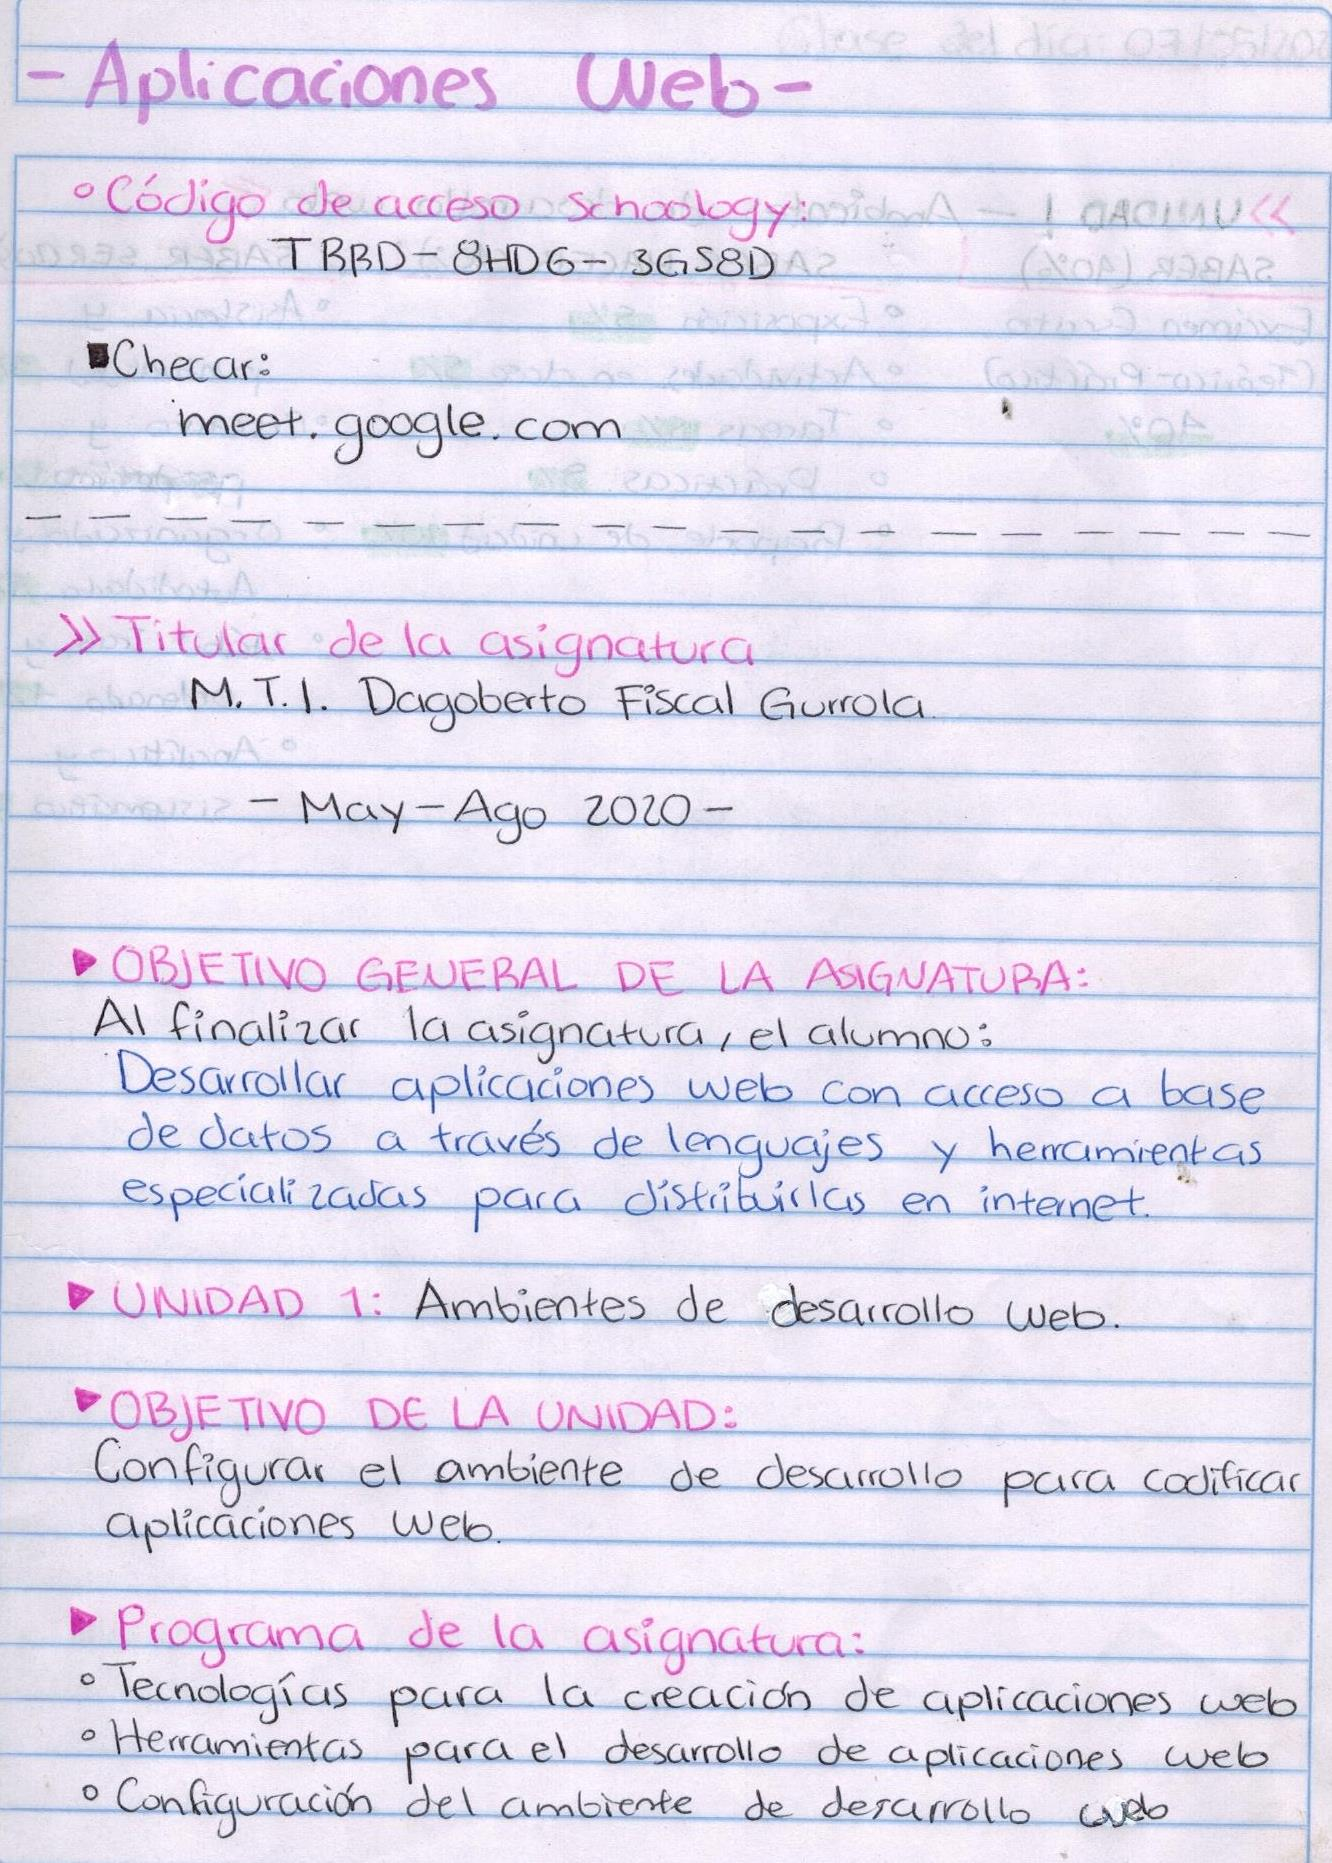 - Aplicaciones Web -
° Código de acceso Schoology:
TBBD-8HDG-3GS8D
■ Checar:
meet.google.com
— — — — — — — — — — — — — — — — — —
>> Titular de la asignatura
M.T.I. Dagoberto Fiscal Gurrola
- May-Ago 2020 -
▶ OBJETIVO GENERAL DE LA ASIGNATURA:
Al finalizar la asignatura, el alumno:
Desarrollar aplicaciones web con acceso a base
de datos a través de lenguajes y herramientas
especializadas para distribuirlas en internet.
▶ UNIDAD 1: Ambientes de desarrollo Web.
▶ OBJETIVO DE LA UNIDAD:
Configurar el ambiente de desarrollo para codificar
aplicaciones Web.
▶ Programa de la asignatura:
° Tecnologías para la creación de aplicaciones web
° Herramientas para el desarrollo de aplicaciones web
° Configuración del ambiente de desarrollo web